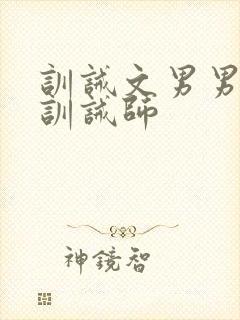 訓誡文男男
訓誡師
神鏡智